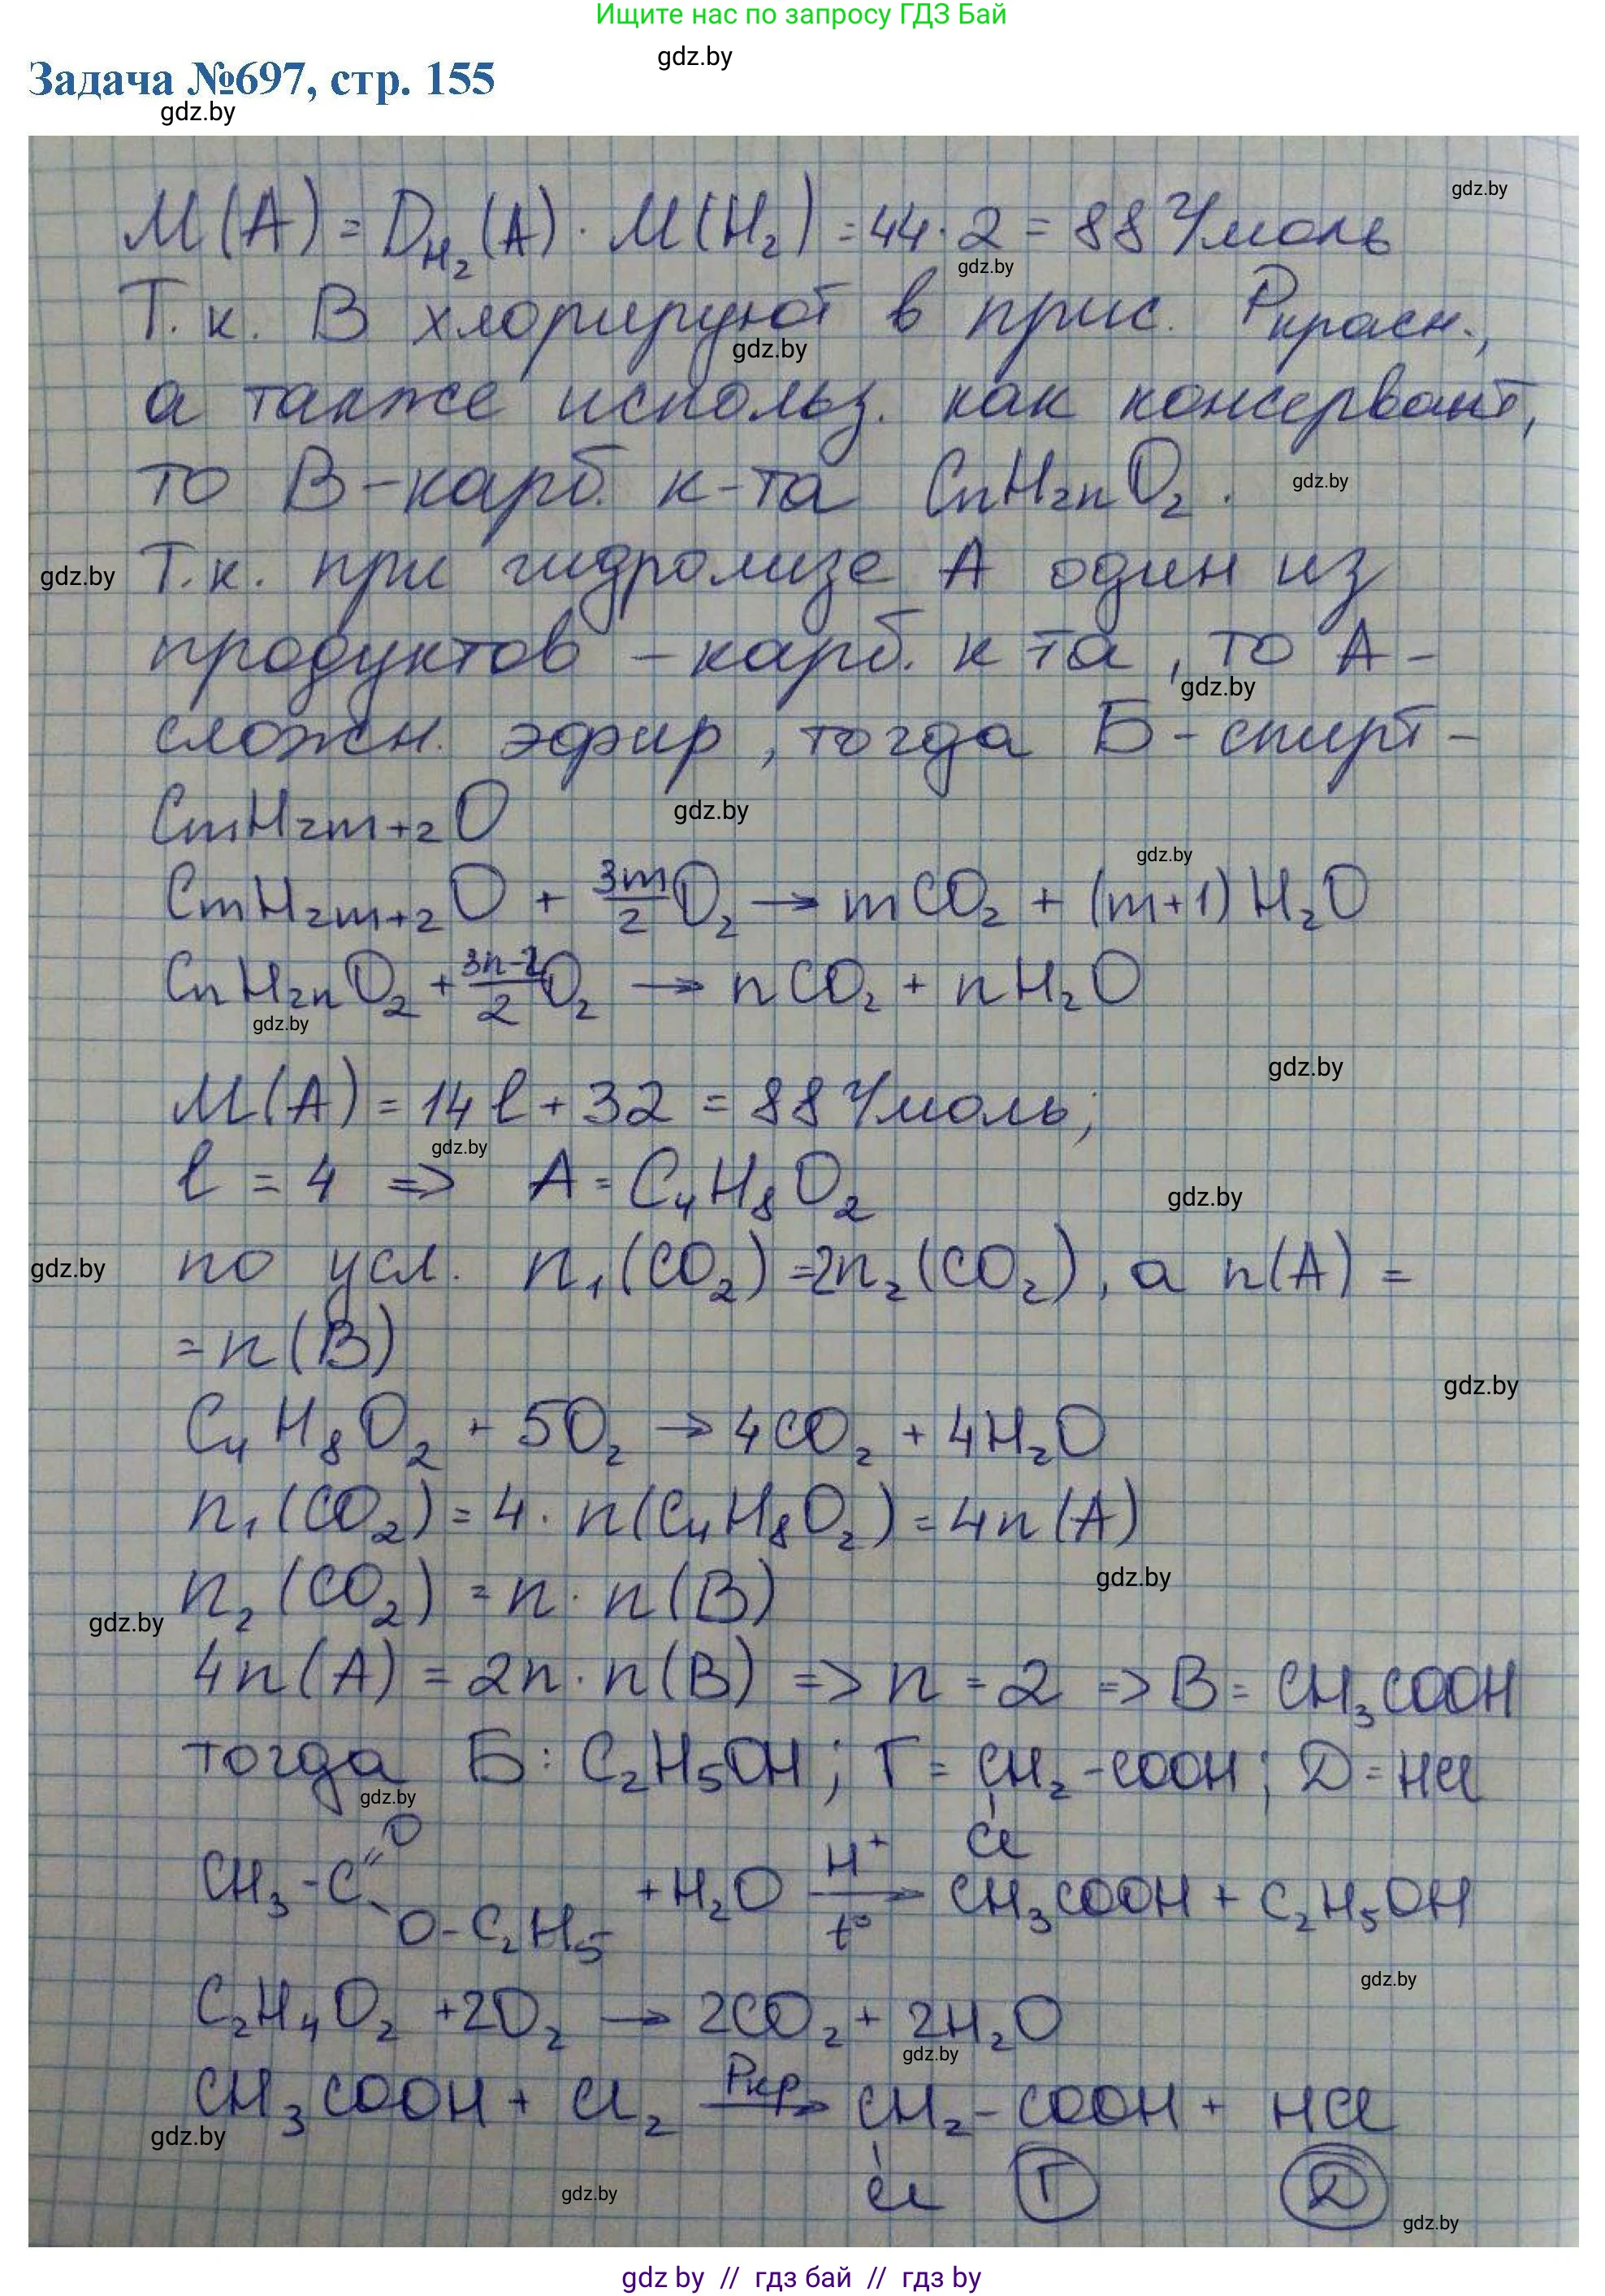 Ищите нас по запросу ГДЗ Бай
gdz.by
Задача №697, стр. 155
gdz.by
gdz.by
M(A) = D_{H₂}(A) · M(H₂) = 44 · 2 = 88 г/моль
gdz.by
Т.к. В хлорируют в прис. P_{красн.},
gdz.by
а также использ. как консервант,
то В - карб. к-та CnH2nO₂.
gdz.by
gdz.by
Т.к. при гидролизе А один из
продуктов - карб. к та, то А -
gdz.by
сложн. эфир, тогда Б - спирт -
gdz.by
CmH2m+2O
gdz.by
CmH2m+2O + 3m/2 O₂ → mCO₂ + (m+1)H₂O
CnH2nO₂ + 3n-2/2 O₂ → nCO₂ + nH₂O
gdz.by
gdz.by
M(A) = 14l + 32 = 88 г/моль;
gdz.by
l = 4 => A = C₄H₈O₂
gdz.by
gdz.by
по усл. n₁(CO₂) = 2n₂(CO₂), а n(A) =
= n(B)
gdz.by
C₄H₈O₂ + 5O₂ → 4CO₂ + 4H₂O
n₁(CO₂) = 4 · n(C₄H₈O₂) = 4n(A)
gdz.by
n₂(CO₂) = n · n(B)
gdz.by
4n(A) = 2n · n(B) => n = 2 => B = CH₃COOH
тогда Б: C₂H₅OH; Г = CH₂-COOH; Д = HCl
gdz.by
Cl
CH₃-C=O O-C₂H₅ + H₂O H⁺ t° → CH₃COOH + C₂H₅OH
gdz.by
C₂H₄O₂ + 2O₂ → 2CO₂ + 2H₂O
gdz.by
CH₃COOH + Cl₂ Pкр → CH₂-COOH + HCl
gdz.by
Cl Г Д
gdz.by
gdz.by
gdz by // гдз бай // гдз by